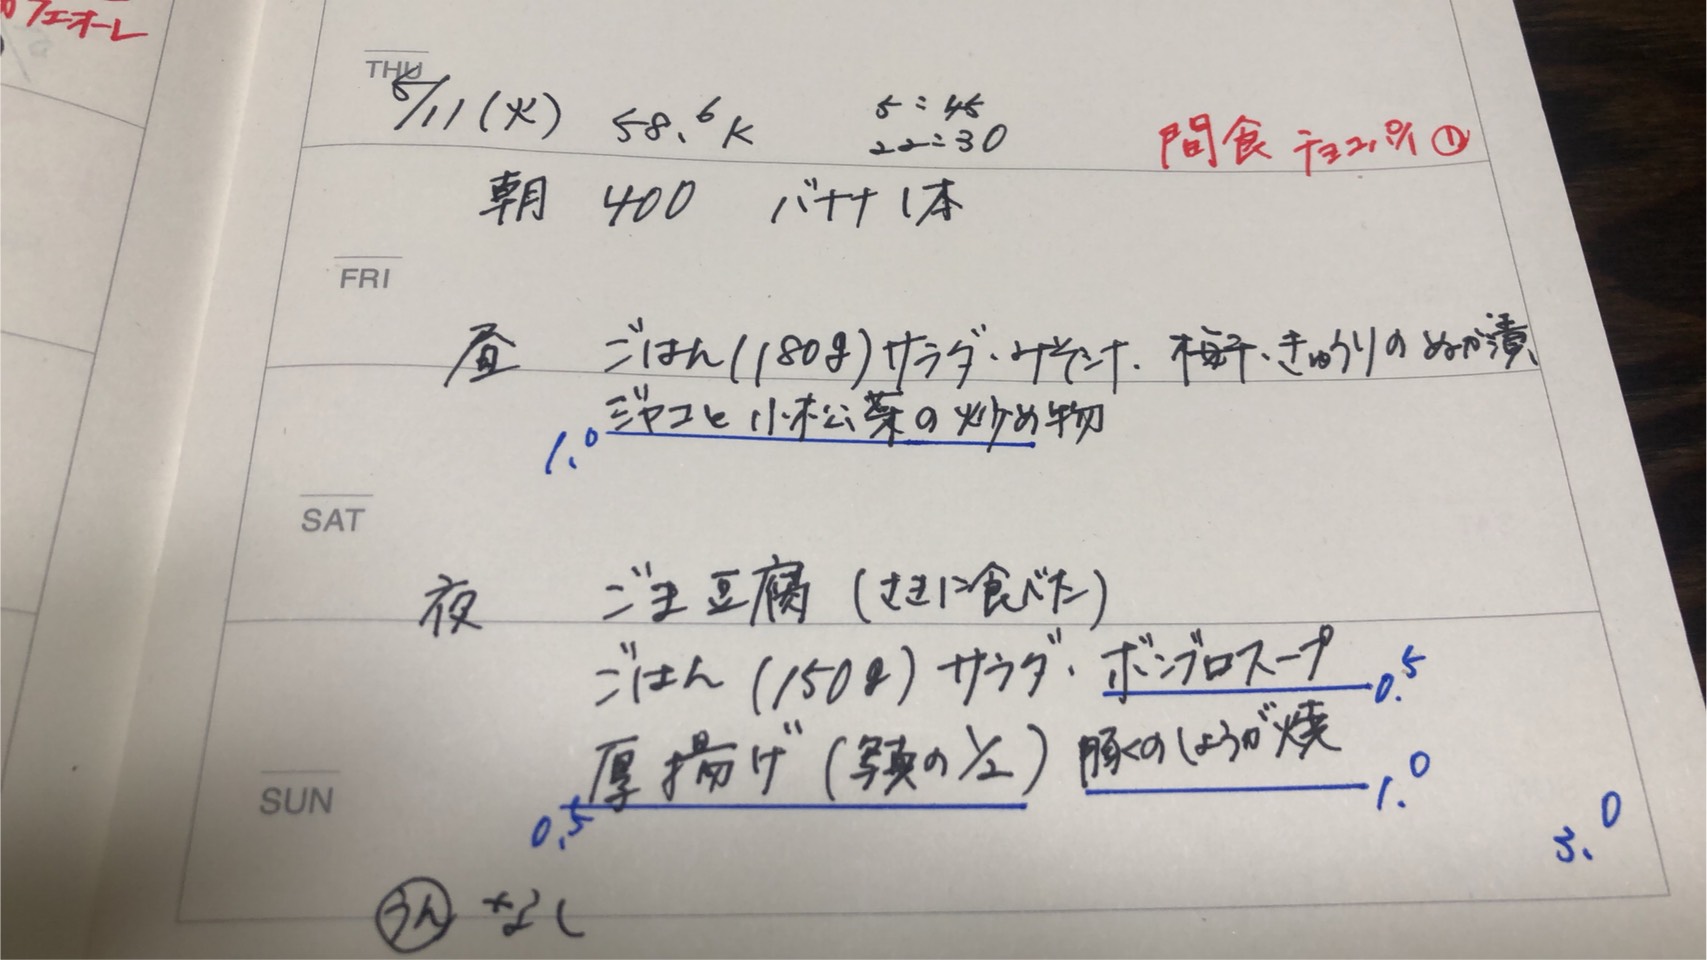 カフェオーレ
THU
5/11(火) 58.6K 5:45
22:30
間食 チョコパイ①
朝 400 バナナ1本
FRI
昼 ごはん(180g)サラダ・みそシナ・梅干・きゅうりのぬか漬、
ジャコと小松菜の炒め物
1.0
SAT
夜 ごま豆腐(さきに食べた)
ごはん(150g)サラダ・ボンブロスープ 0.5
厚揚げ(写真の1/2) 豚くのしょうが焼
0.5 1.0
SUN
3.0
うん なし